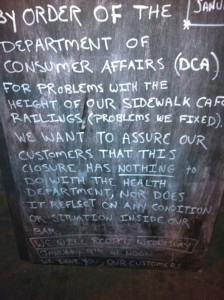 BY ORDER OF THE
JANU
DEPARTMENT OF
CONSUMER AFFAIRS (DCA)
FOR PROBLEMS WITH THE
HEIGHT OF OUR SIDEWALK CAF
RAILINGS, (PROBLEMS WE FIXED).
WE WANT TO ASSURE OUR
CUSTOMERS THAT THIS
CLOSURE HAS NOTHING TO
DO WITH THE HEALTH
DEPARTMENT, NOR DOES
IT REFLECT ON ANY CONDITION
OR SITUATION INSIDE OUR
BAR.
WE WILL REOPEN WEDNESDAY
JANUARY AT NOON
WE LOVE YOU, OUR CUSTOMERS